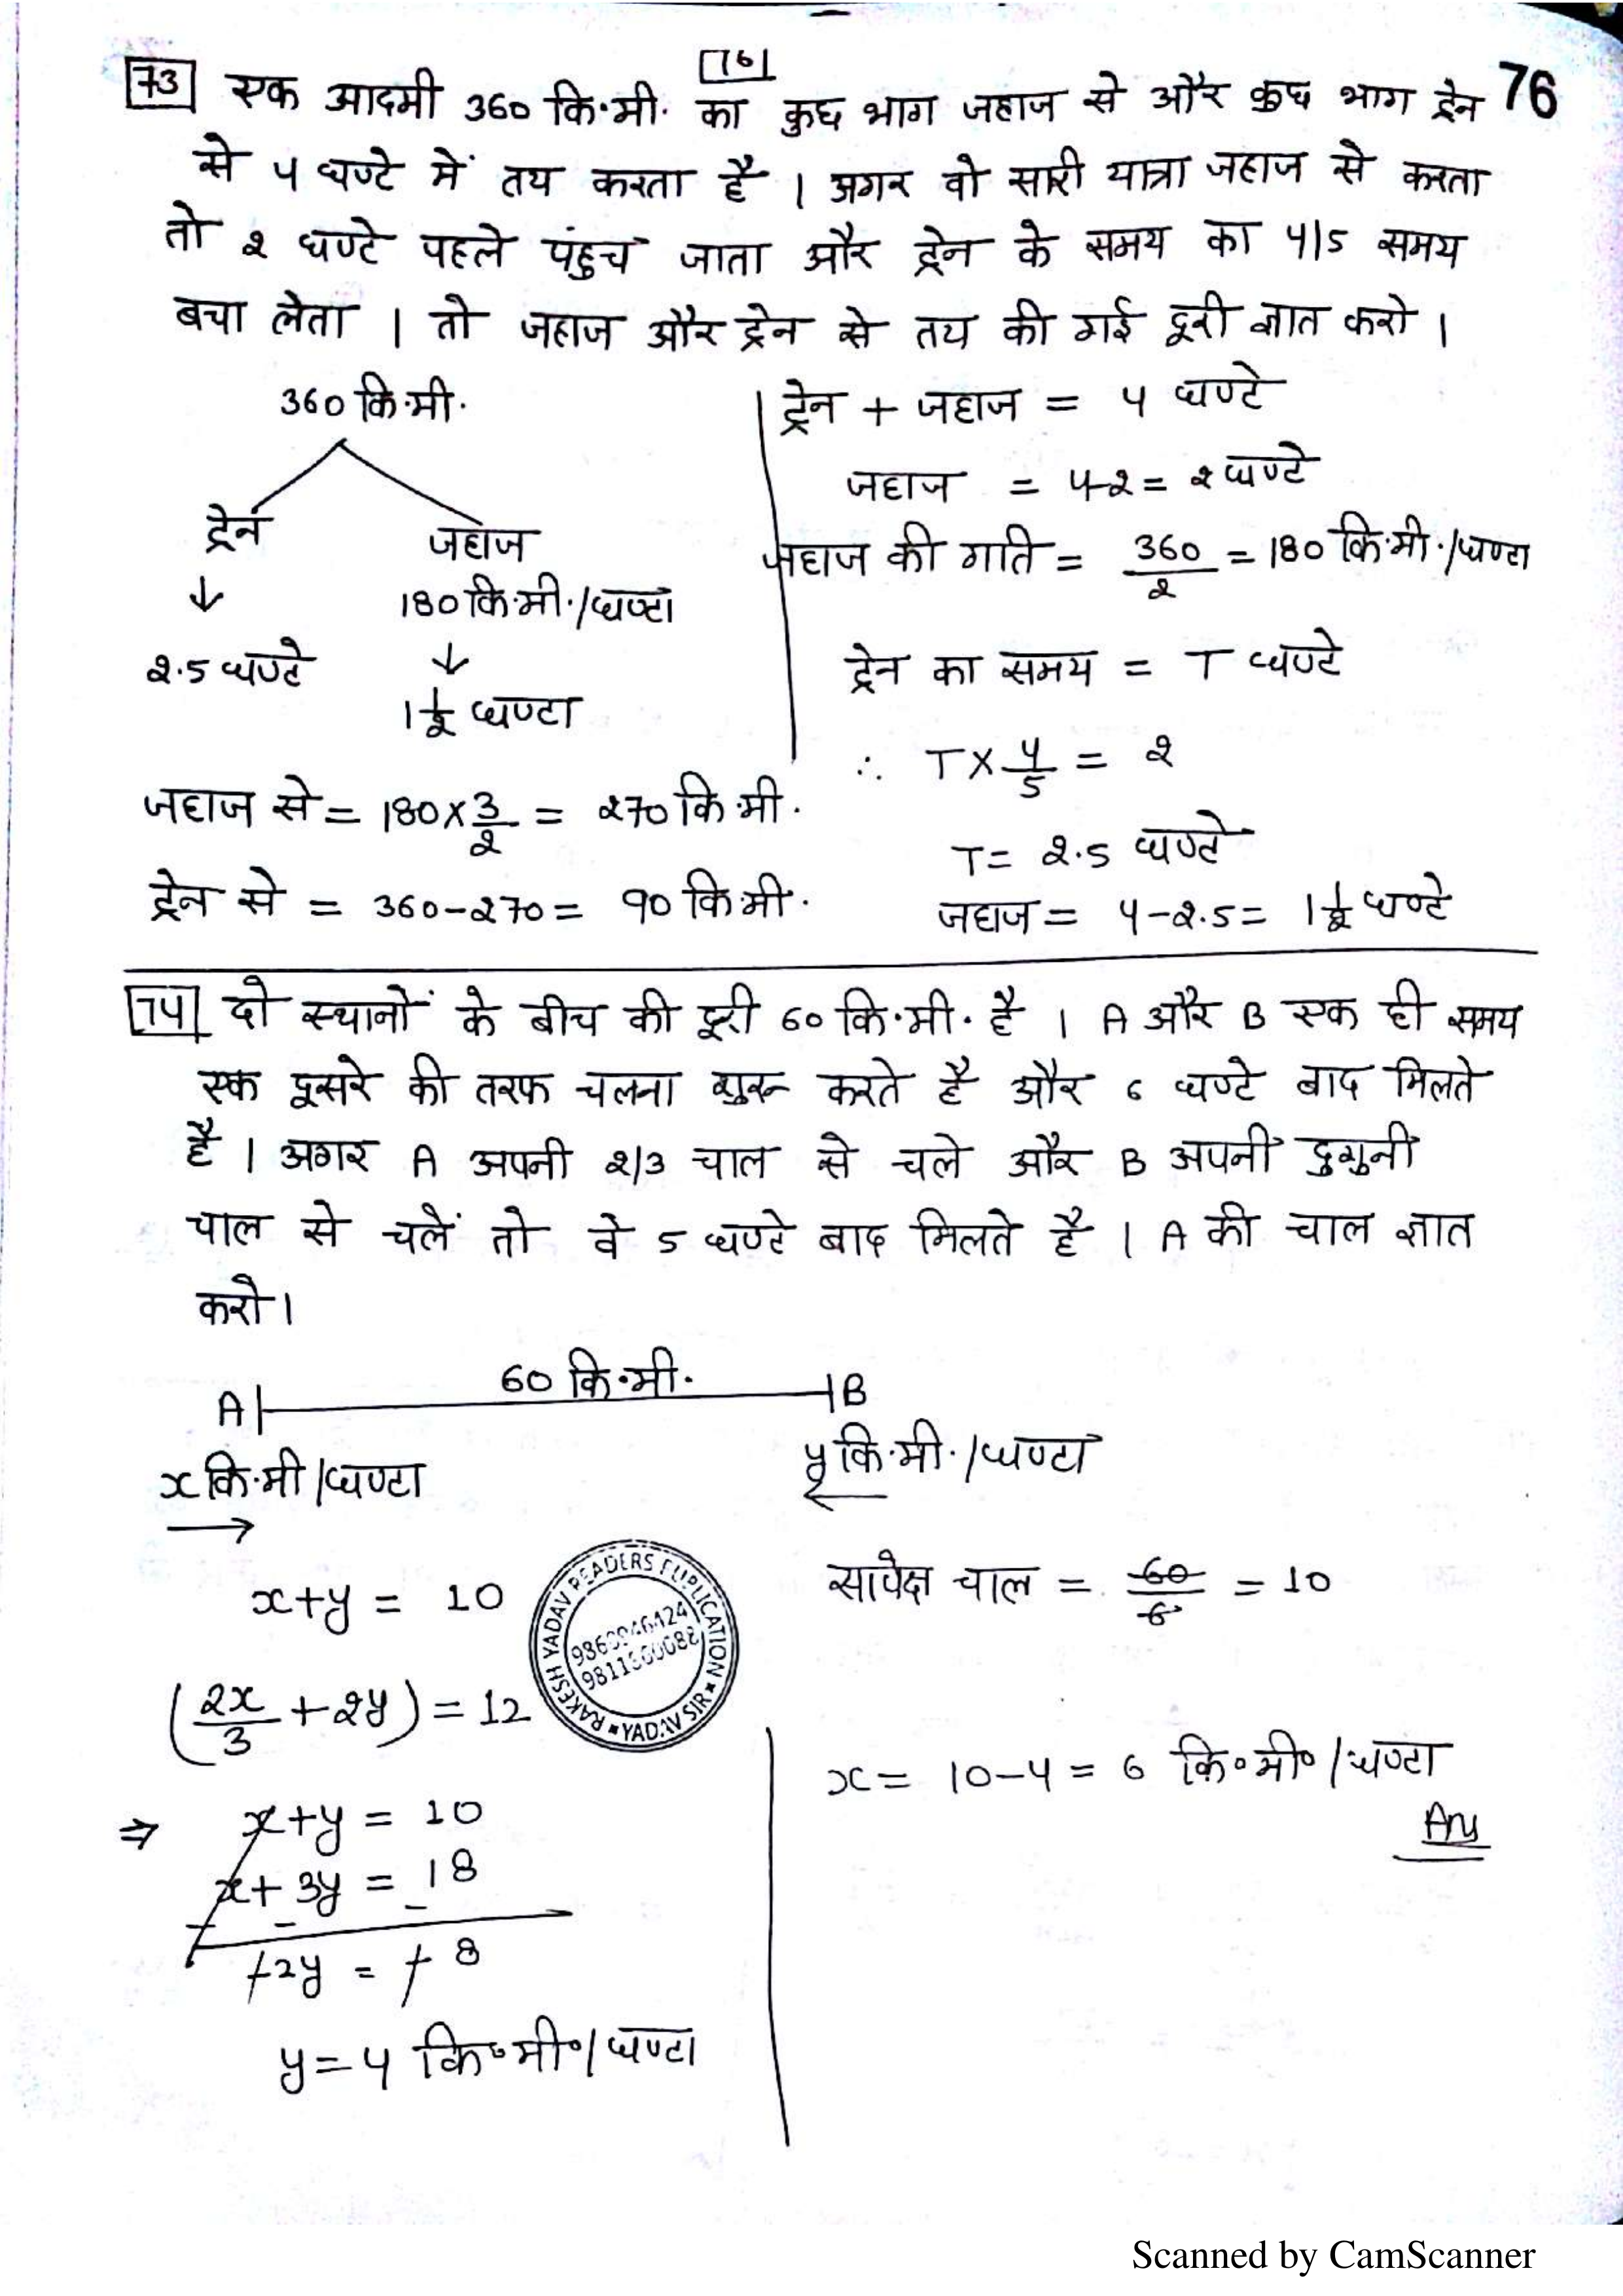 [76]
76
[73] एक आदमी 360 कि.मी. का कुछ भाग जहाज से और कुछ भाग ट्रेन
से 4 घण्टे में तय करता है। अगर वो सारी यात्रा जहाज से करता
तो 2 घण्टे पहले पंहुच जाता और ट्रेन के समय का 4/5 समय
बचा लेता। तो जहाज और ट्रेन से तय की गई दूरी ज्ञात करो।
360 कि.मी.
ट्रेन जहाज
↓ 180 कि.मी./घण्टा
2.5 घण्टे ↓
1 1/2 घण्टा
जहाज से = 180 × 3/2 = 270 कि.मी.
ट्रेन से = 360 - 270 = 90 कि.मी.
ट्रेन + जहाज = 4 घण्टे
जहाज = 4-2 = 2 घण्टे
जहाज की गति = 360/2 = 180 कि.मी./घण्टा
ट्रेन का समय = T घण्टे
∴ T × 4/5 = 2
T = 2.5 घण्टे
जहाज = 4 - 2.5 = 1 1/2 घण्टे
[74] दो स्थानों के बीच की दूरी 60 कि.मी. है। A और B एक ही समय
एक दूसरे की तरफ चलना शुरू करते है और 6 घण्टे बाद मिलते
है। अगर A अपनी 2/3 चाल से चले और B अपनी दुगुनी
चाल से चलें तो वे 5 घण्टे बाद मिलते है। A की चाल ज्ञात
करो।
60 कि.मी.
A B
x कि.मी/घण्टा y कि.मी./घण्टा
→
x+y = 10
सापेक्ष चाल = 60/6 = 10
(2x/3 + 2y) = 12
⇒ x+y = 10
x+3y = 18
- - -
+2y = +8
y = 4 कि॰मी॰/घण्टा
x = 10-4 = 6 कि॰मी॰/घण्टा
Ans
RAKESH YADAV READERS PUPLICATION
YADAV SIR
Scanned by CamScanner